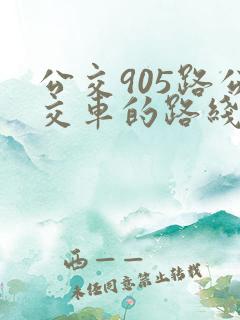 公交905路公
交车的路线
西——
未经同意禁止转载